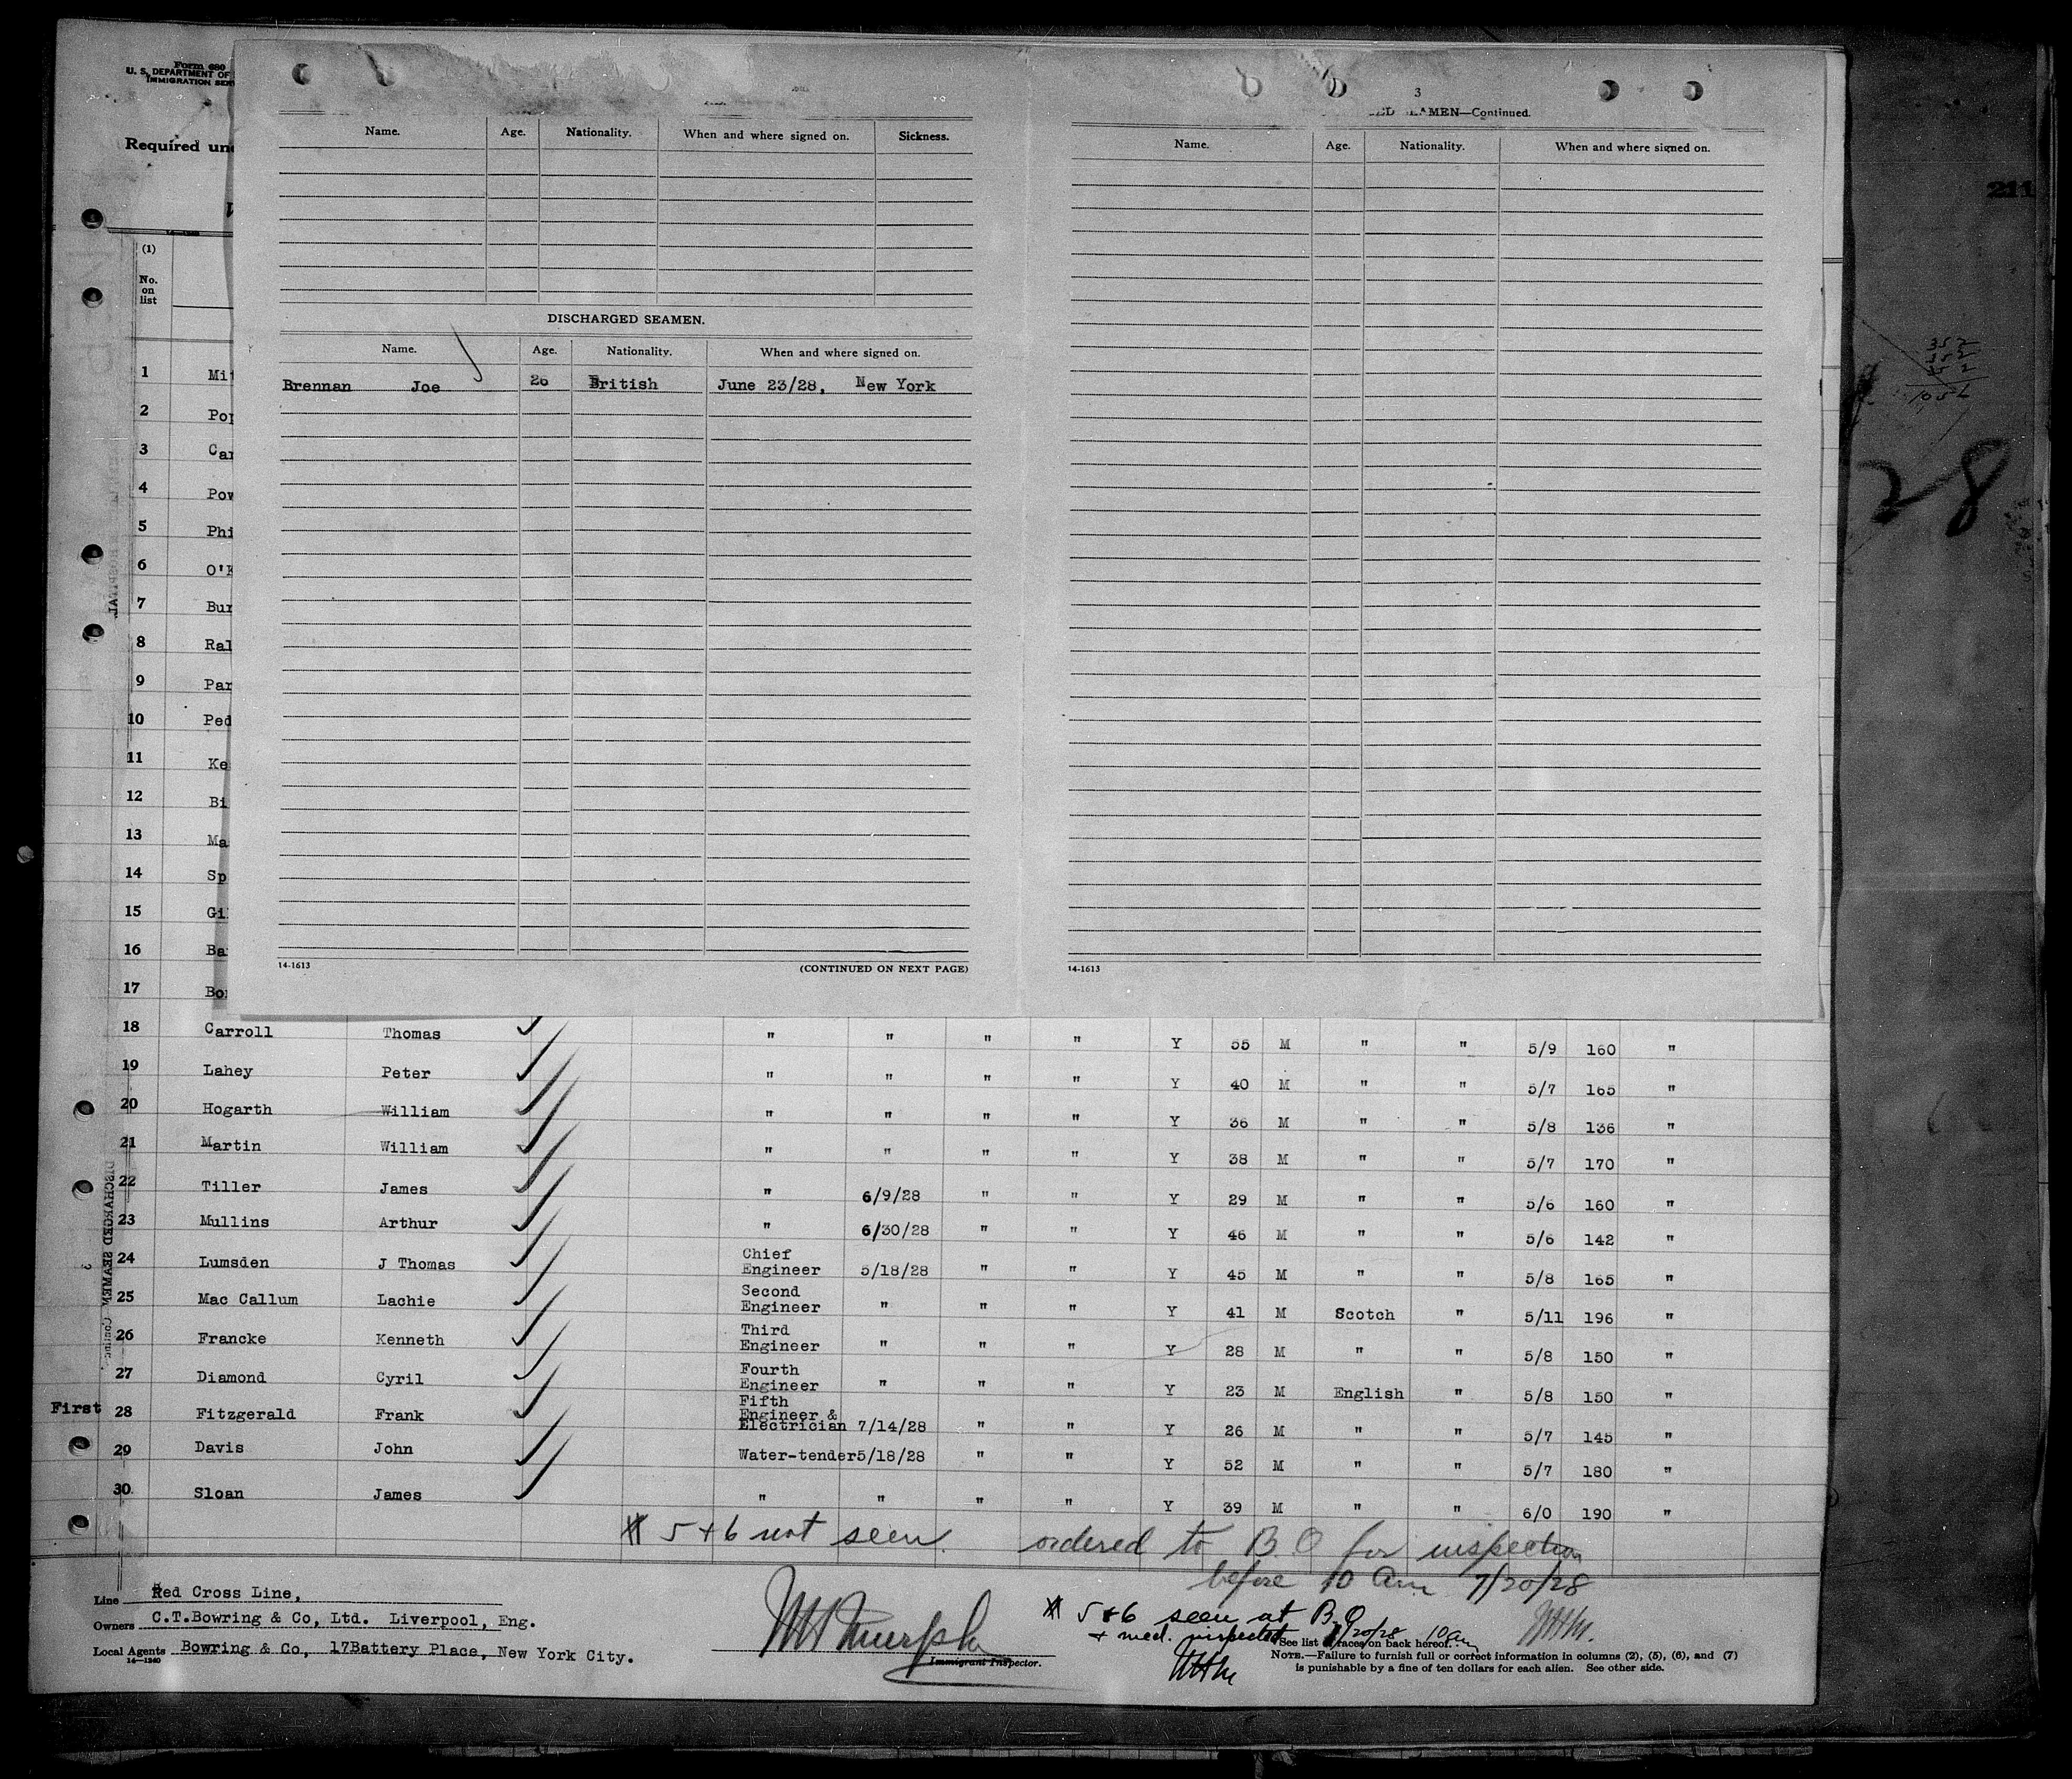 Form 680
U. S. DEPARTMENT OF
IMMIGRATION SER
Required un
(1)
No.
on
list
Name. Age. Nationality. When and where signed on. Sickness.
DISCHARGED SEAMEN.
Name. Age. Nationality. When and where signed on.
Brennan Joe 26 British June 23/28, New York
14-1613 (CONTINUED ON NEXT PAGE)
3
MEN—Continued.
Name. Age. Nationality. When and where signed on.
14-1613
211
28
1 Mi
2 Pop
3 Car
4 Pow
5 Phi
6 O'K
7 Bur
8 Ral
9 Par
10 Ped
11 Ke
12 Bi
13 Ma
14 Sp
15 Gi
16 Ba
17 Bo
18 Carroll Thomas " " " " Y 55 M " " 5/9 160 "
19 Lahey Peter " " " " Y 40 M " " 5/7 165 "
20 Hogarth William " " " " Y 36 M " " 5/8 136 "
21 Martin William " " " " Y 38 M " " 5/7 170 "
22 Tiller James " 6/9/28 " " Y 29 M " " 5/6 160 "
23 Mullins Arthur " 6/30/28 " " Y 46 M " " 5/6 142 "
24 Lumsden J Thomas Chief Engineer 5/18/28 " " Y 45 M " " 5/8 165 "
25 Mac Callum Lachie Second Engineer " " " Y 41 M Scotch " 5/11 196 "
26 Francke Kenneth Third Engineer " " " Y 28 M " " 5/8 150 "
27 Diamond Cyril Fourth Engineer " " " Y 23 M English " 5/8 150 "
First 28 Fitzgerald Frank Fifth Engineer & Electrician 7/14/28 " " Y 26 M " " 5/7 145 "
29 Davis John Water-tender 5/18/28 " " Y 52 M " " 5/7 180 "
30 Sloan James " " " " Y 39 M " " 6/0 190 "
DISCHARGED SEAMEN
5 + 6 not seen. ordered to B.O for inspection
before 10 am 7/20/28
5 + 6 seen at B.O
+ med. inspected 7/20/28 10 am
Line Red Cross Line,
Owners C.T.Bowring & Co, Ltd. Liverpool, Eng.
Local Agents Bowring & Co, 17Battery Place, New York City.
14—1240
Immigrant Inspector.
See list of races on back hereof.
NOTE.—Failure to furnish full or correct information in columns (2), (5), (6), and (7)
is punishable by a fine of ten dollars for each alien. See other side.